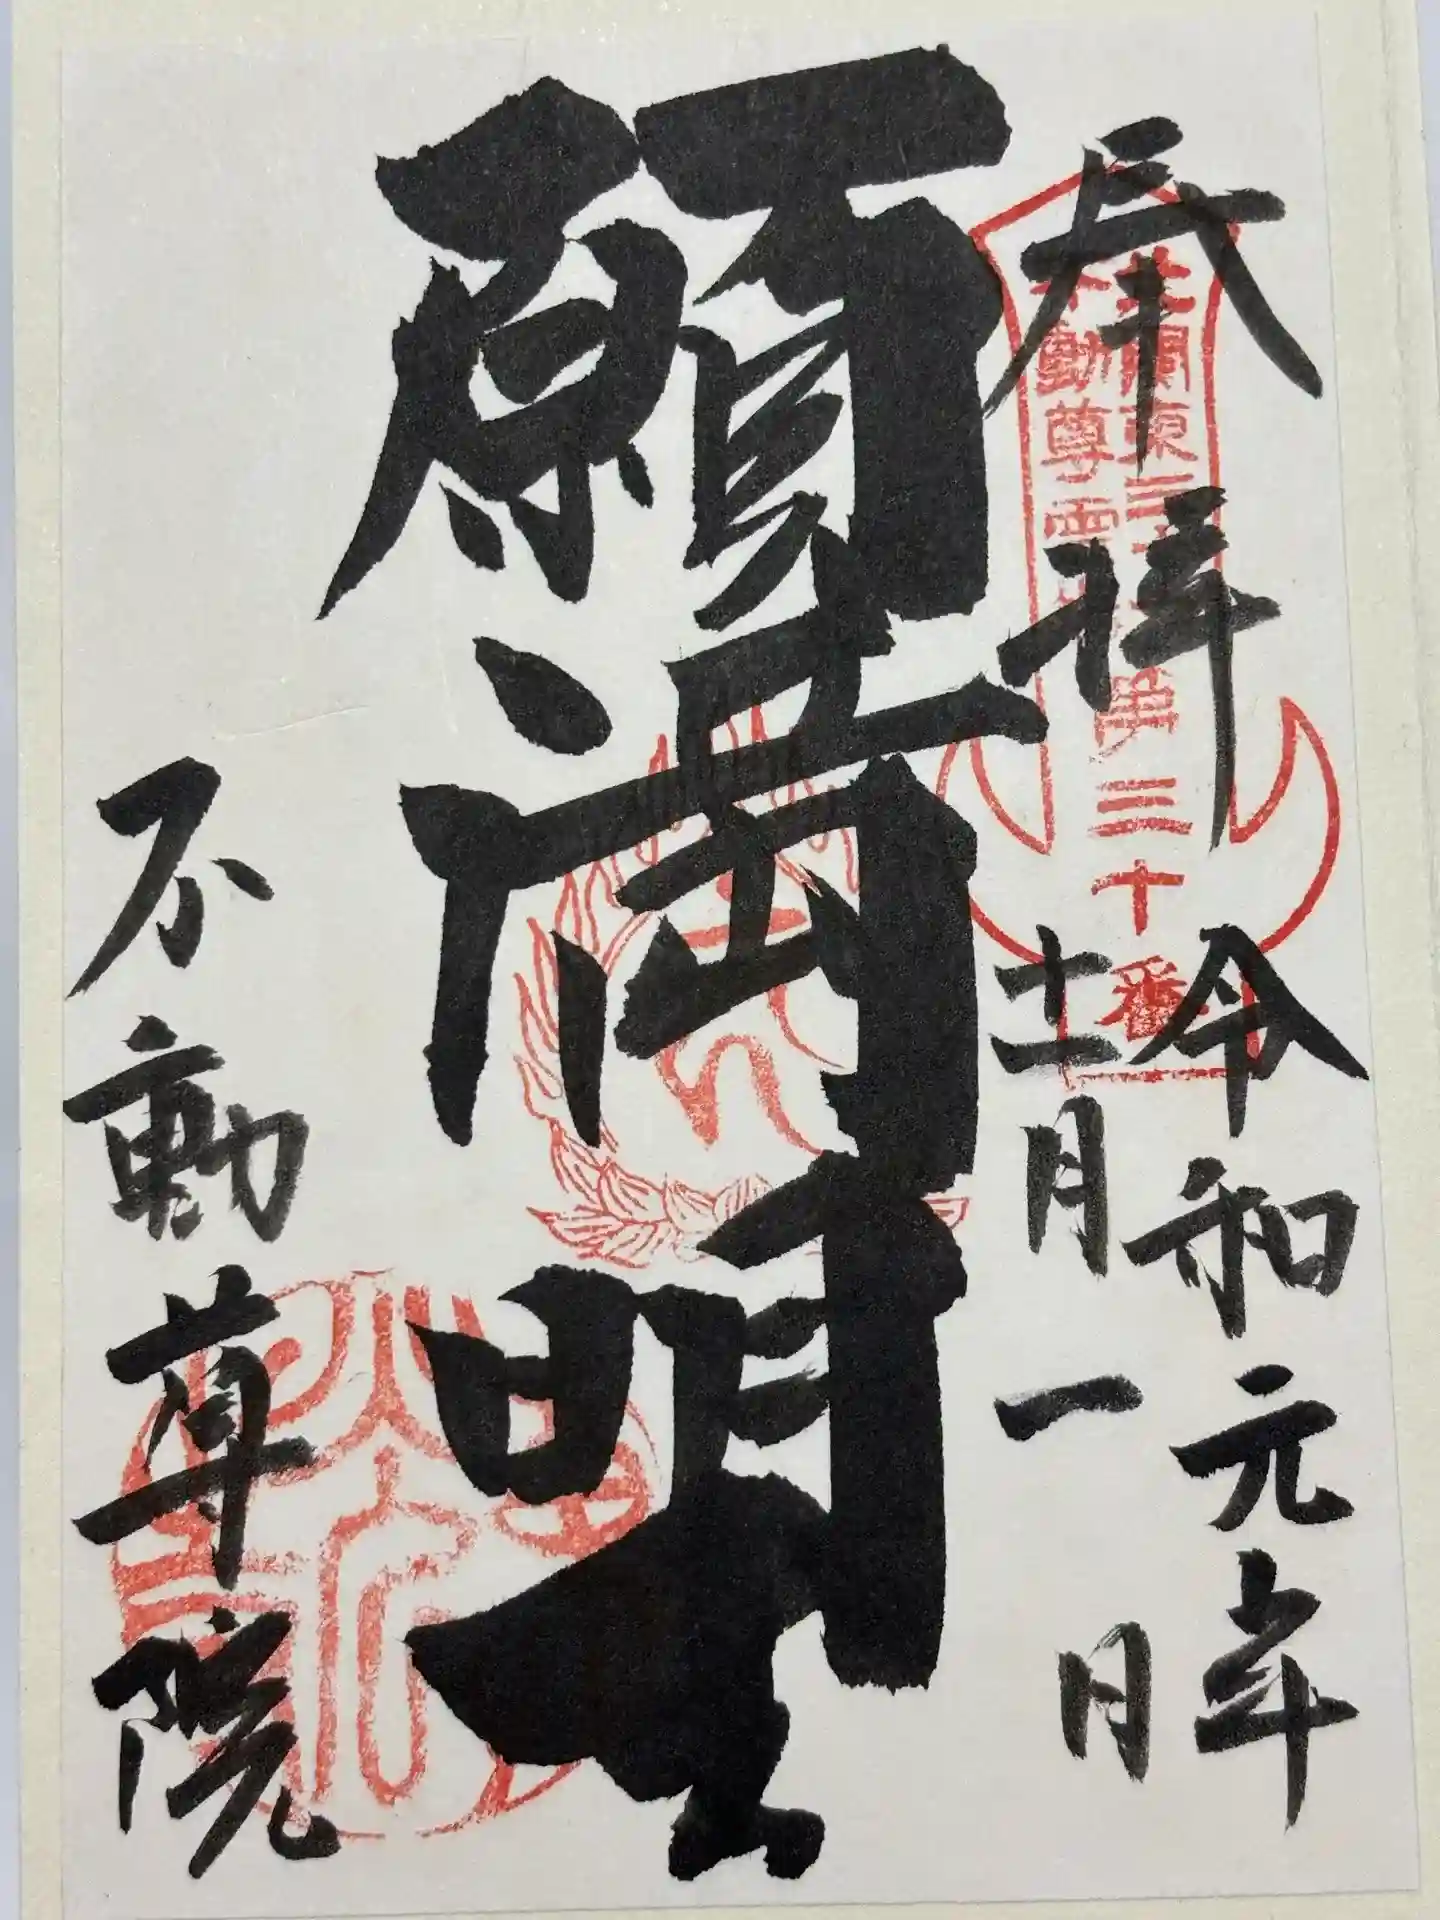 奉拝
北関東三
不動尊霊
第三十番
令和元年
十一月一日
願満明王
不動尊院